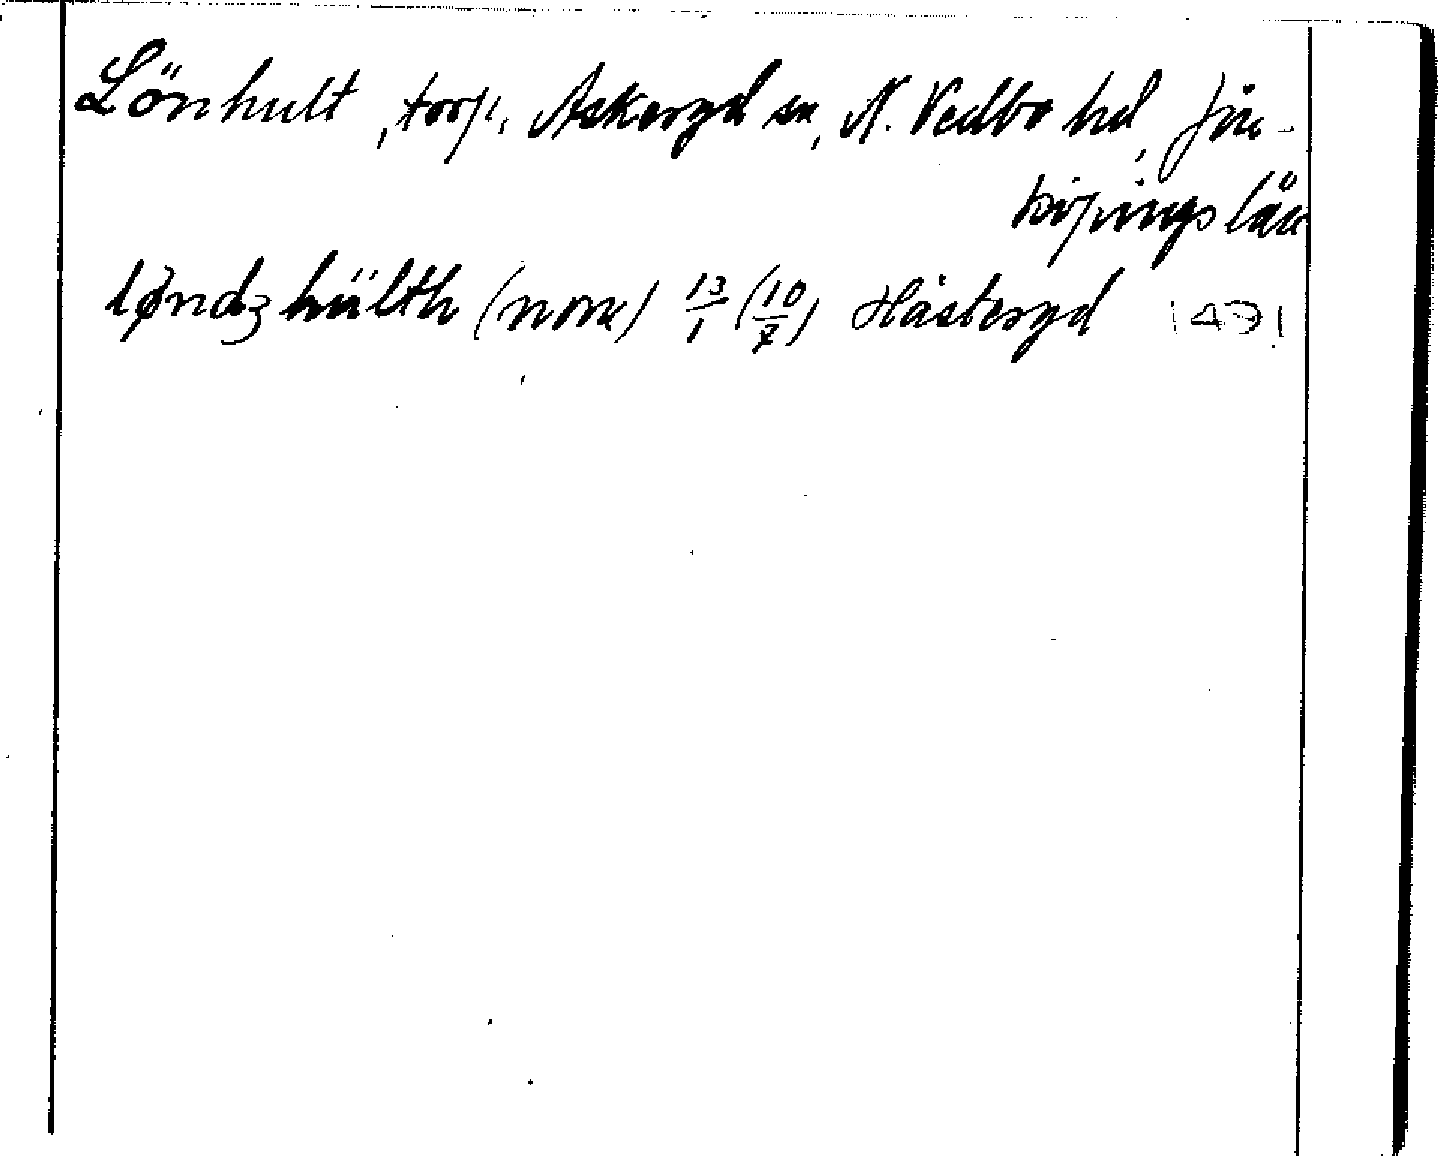 Lönhult, torp, Askeryd sn, N. Vedbo hd, Jön-
köpings län
løndzhŭlth (nom) 13/1 (10/7) Hästeryd 1471